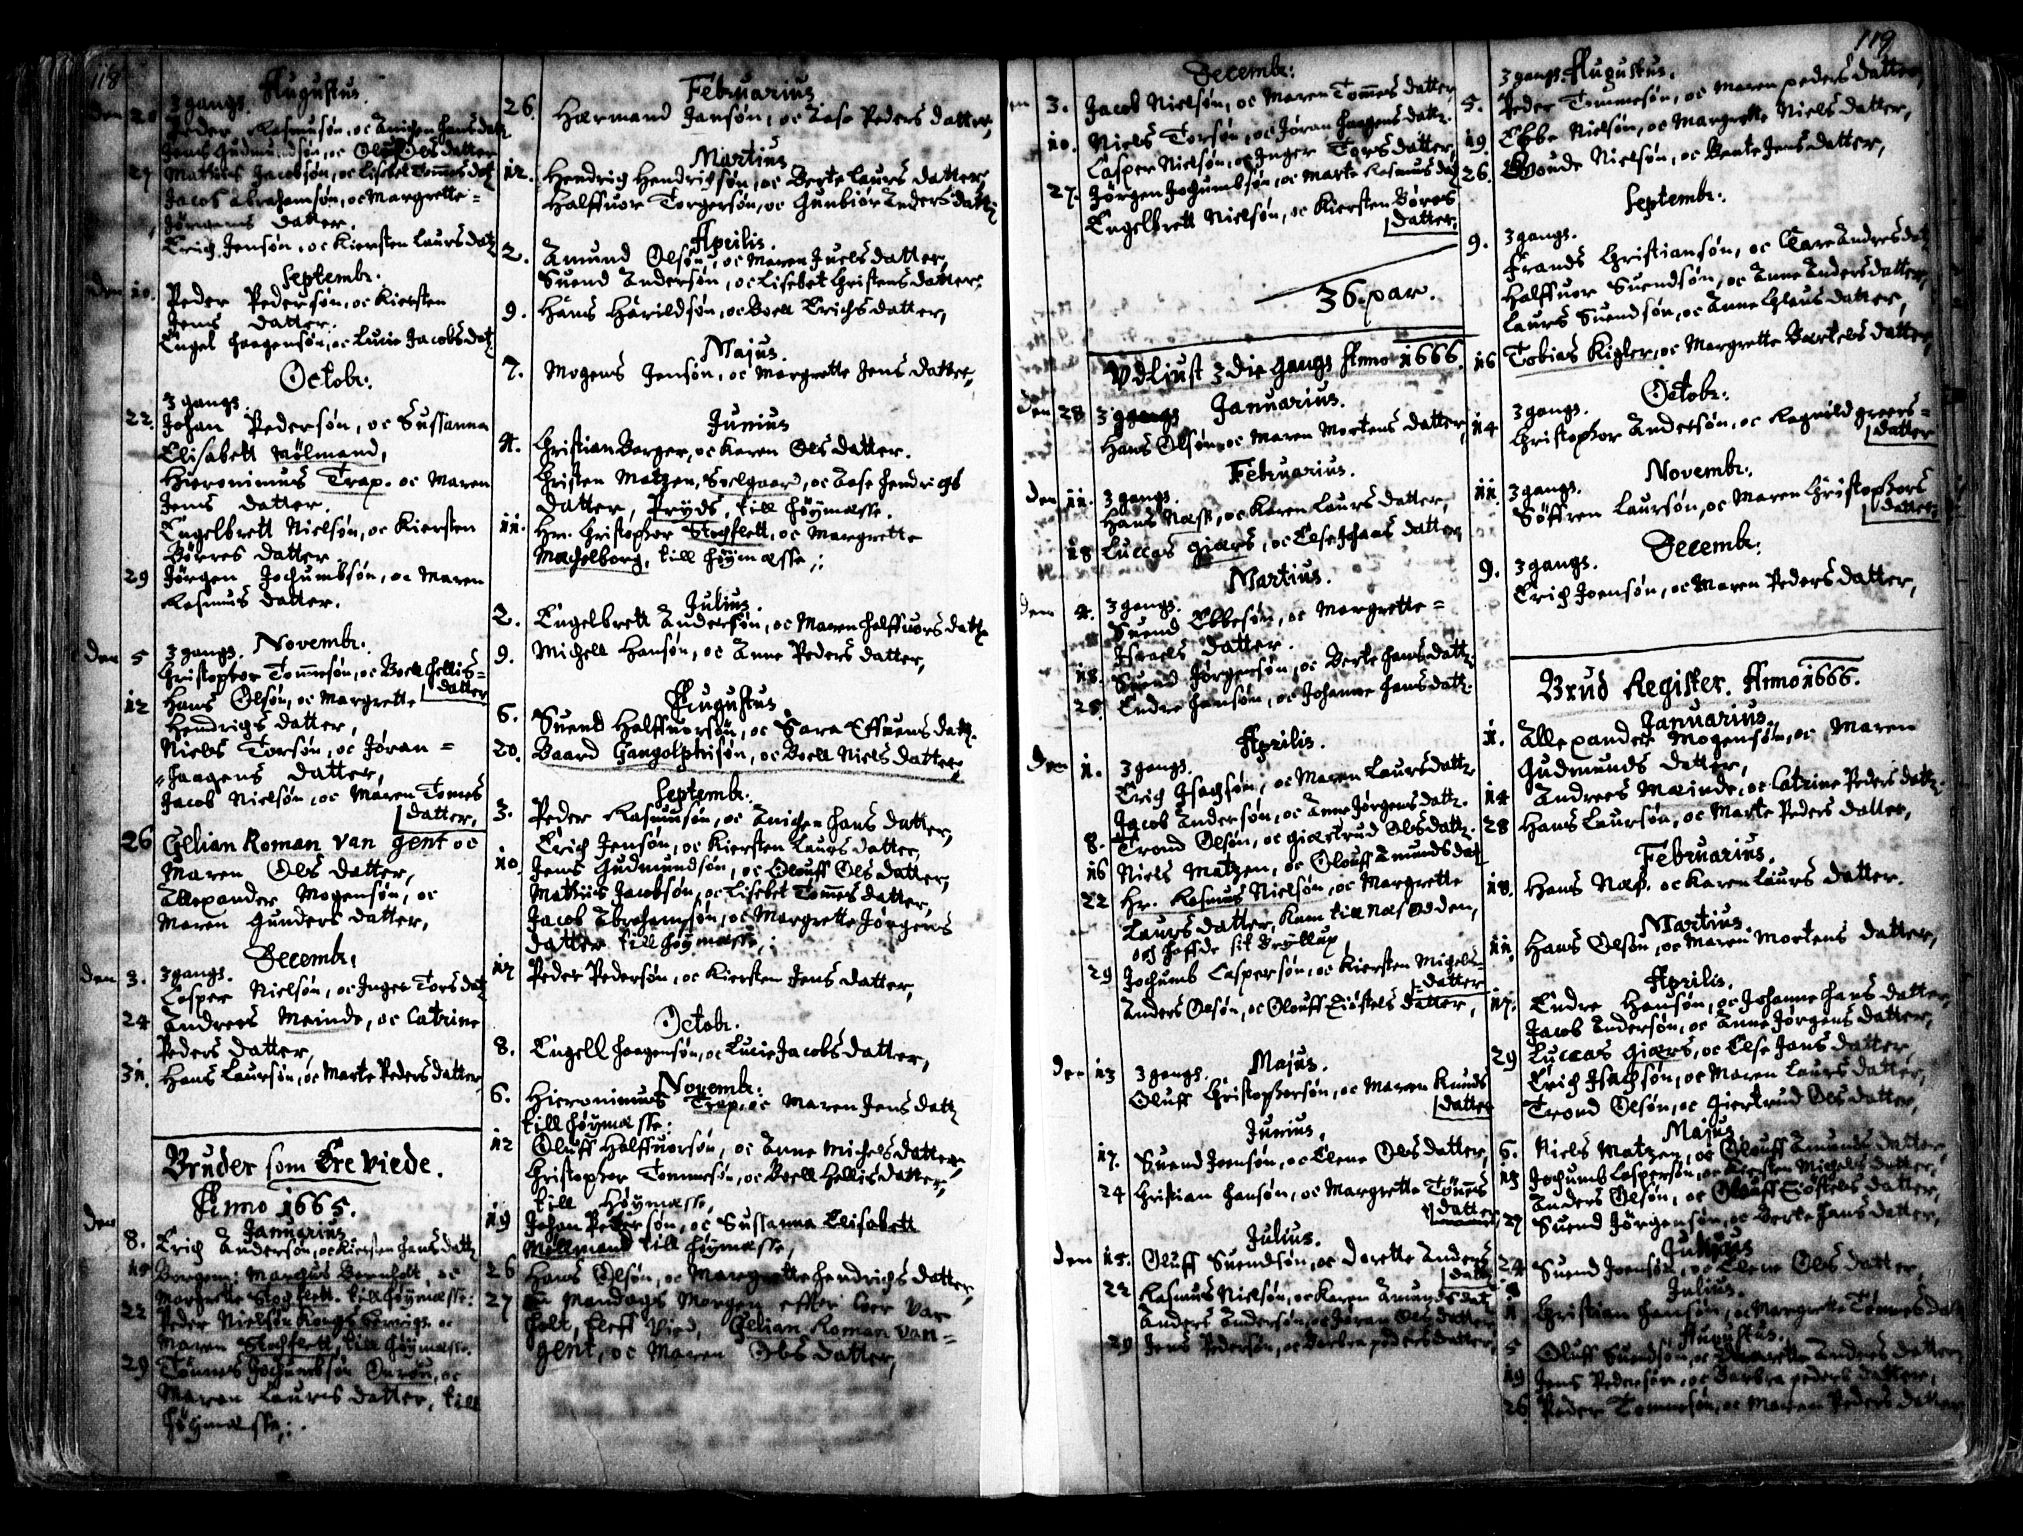 118
3 gangs. Augustus.
den 20 Peder Rasmusøn, oc Anichen Hans datt
Jens Gudmundsøn, oc Oluff Ols datter
27 Mathius Jacobsøn, oc Lisebet Tom̃es dat
Jacob Abrahamsøn, oc Margrette =
Jørgens datter.
Erich Jensøn, oc Kiersten Laurs datt
Septembr:
den 10. Peder Pedersøn, oc Kiersten
Jens datter.
Engel Haagensøn, oc Lucie Jacobs dat
Octobr:
3 gangs.
22. Johan Pedersøn, oc Sussanna
Elisabett Mølmand,
Hieronimus Trap. oc Maren
Jens datter.
Engelbrett Nielsøn, oc Kiersten
Børres datter.
29 Jørgen Jochumbsøn, oc Maren
Rasmus datter.
3 gangs. Novembr:
den 5 Christopher Tom̃esøn, oc Boell Hellis=
datter
12 Hans Olsøn, oc Margrette
Hendrichs datter,
Niels Torsøn, oc Jøran =
Haagens datter,
Jacob Nielsøn, oc Maren Tom̃es
datter,
26 Gelian Roman van gent oc
Maren Ols datter,
Allexander Mogensøn, oc
Maren Gunders datter,
Decembr:
den 3. 3 gangs.
Casper Nielsøn, oc Inger Tors dat
24 Andrees Meinde, oc Catrine
Peders datter,
31. Hans Laursøn, oc Marte Peders datter
Bruder som Ere Viede.
Anno 1665.
den Januarius
8. Erich Andersøn, oc Kiersten Jens datt
15 Borgem: Marchus Bernholt, oc
Margrette Stochflett. till Høymæsse:
22 Peder Nielsøn Kongs oc
Maren Stochflett, till Høymæsse.
29 Tønnes Jochumbsøn oc
Maren Laurs datter, till
Høymæsse:.
Februarius
26. Hermand Jansøn, oc Aase Peders datter,
Martius
12. Hendrich Hendrichsøn, oc Berte Laurs datter
Halffuor Torgersøn, oc Gunbiør Anders datt
Aprilis.
2. Amund Olsøn, oc Maren Juels datter,
Suend Andersøn, oc Lisebet Christens datter,
9. Hans Harildsøn, oc Boell Erichs datter,
Majus.
7. Mogens Jensøn, oc Margrette Jens datter,
Junius
4. Christian Borger, oc Karen Ols datter.
Christen Matzen, Soelgaard, oc Aase Hendrichs
datter, Pryds, till Høymæsse.
11. Hr. Christopher Stochflett, oc Margrette
Machelborg, till Høymæsse.:
Julius.
2. Engelbrett Andersøn, oc Maren Halffuors datt
9. Michell Hansøn, oc Anne Peders datter,
Augustus
6. Suend Halffuorsøn, oc Sara Effuens datt.
20. Baard Gangolphisøn, oc Boell Niels datter,
Septembr:
3. Peder Rasmusøn, oc Anichen Hans datter,
Erich Jensøn, oc Kiersten Laurs datter,
10. Jens Gudmundsøn, oc Oluff Ols datter,
Mathiis Jacobsøn, oc Lisebet Tom̃es datter,
Jacob Abrahamsøn, oc Margrette Jørgens
datter till Høymæsse.:
17 Peder Pedersøn, oc Kiersten Jens datter,
Octobr.
8. Engell Haagensøn, oc Lucie Jacobs datter,
Novembr:
6. Hieronimus Trap, oc Maren Jens datt
till Høymæsse:
12 Oluff Halffuorsøn, oc Anne Michels datter,
Christopher Tommesøn, oc Boell Hellis datter,
till Høymæsse,
19 Johan Pedersøn, oc Sussanna Elisabett
Møllmand till Høymæsse,
26 Hans Olsøn, oc Margrette Hendrichs datter,
27 Mandags Morgen effter Coer Var
holt, bleff Vied, Gelian Roman van=
gent, oc Maren Ols datter,
119
Decembr:
den 3. Jacob Nielsøn, oc Maren Tom̃es datter
10. Niels Torsøn, oc Jøran Haagens datt:
Casper Nielsøn, oc Inger Tors datter,
27. Jørgen Jochumbsøn, oc Marte Rasmus dat
Engelbrett Nielsøn, oc Kiersten Børres
datter.
36. par.
Vdliust 3 die gangs Anno 1666.
den 28 3 gangs Januarius.
Hans Olsøn, oc Maren Mortens datter,
Februarius.
den 11. 3 gangs.
Hans Næss, oc Karen Laurs datter,
18 Luccas Giærs, oc Else Hans datter
Martius.
den 4. 3 gangs.
Suend Ebbesøn, oc Margrette =
Israels datter.
18. Suend Jørgensøn, oc Berte Hans datt:
25. Endre Hansøn, oc Johanne Hans datt:
Aprilis.
den 1. 3 gangs.
Erich Isachsøn, oc Maren Laurs datter
Jacob Andersøn, oc Anne Jørgens datt.
8. Trond Olsøn, oc Giertrud Ols datt.
16 Niels Matzen, oc Olouff Amunds dat
22 Hr. Rasmus Nielsøn, oc Margrette
Laurs datter, kam till Næs Odden,
och hoffde sit brøllup,
29 Jochumb Caspersøn, oc Kiersten Michels=
datter
Anders Olsøn, oc Olouff Siøstels datter,
Majus.
den 13 3 gangs.
Oluff Christophersøn, oc Maren Knuds
datter
Junius.
17. Suend Joensøn, oc Elene Ols datter,
24 Christian Hansøn, oc Margrette Tønnes
datter
Julius.
den 15. Oluff Suendsøn, oc Dorette Anders
datt
22 Rasmus Nielsøn, oc Karen Amunds dat
Anders Andersøn, oc Jøran Ols datter
29 Jens Pedersøn, oc Barbra peders datter
3 gangs. Augustus.
5. Peder Tommesøn, oc Maren peders datter,
19. Ebbe Nielsøn, oc Margrette Niels datter,
26. Gvonde Nielsøn, oc Bente Jens datter,
Septembr:
9. 3 gangs.
Frands Christiansøn, oc Clare Andres dat
Halffuor Suendsøn, oc Anne Anders datter,
Laurs Suendsøn, oc Anne Claus datter,
16 Tobias Kigler, oc Margrette Bartels datter,
Octobr:
3 gangs.
14 Christophor Andersøn, oc Ragnild greers=
datter
Novembr:
11 3 gangs.
Søffren Laursøn, oc Maren Christophers
datter
Decembr:
9. 3 gangs.
Erich Joensøn, oc Maren Peders datter,
Brud Register. Anno 1666.
Januarius.
1. Allexander Mogensøn, oc Maren
Gudmunds datter,
14 Andrees Meinde, oc Catrine Peders datt.
28 Hans Laursøn, oc Marte Peders datter,
Februarius.
18. Hans Næss. oc Karen Laurs datter.
Martius.
11. Hans Olsøn, oc Maren Mortens datter,
Aprilis.
17. Endre Hansøn, oc Johanne Hans datter,
Jacob Andersøn, oc Anne Jørgens datter,
29 Luccas Giærs, oc Else Jans datter,
Erich Isachsøn, oc Maren Laurs datter,
Trond Olsøn, oc Giertrud Ols datter,
Majus
6. Niels Matzen, oc Olouff Amunds datter,
13 Jochumb Caspersøn, oc Kiersten Michels datter,
Anders Olsøn, oc Olouff Siøstels datter,
27 Suend Jørgensøn, oc Berte Hans datter,
Junius
24 Suend Joensøn, oc Elene Ols datter,
Julius.
1 Christian Hansøn, oc Margrette Tønnes dat
Augustus.
5 Oluff Suendsøn, oc Dorette Anders datter
19 Jens Pedersøn, oc Barbra peders datter,
26 Peder Tommesøn, oc Maren Peders datter